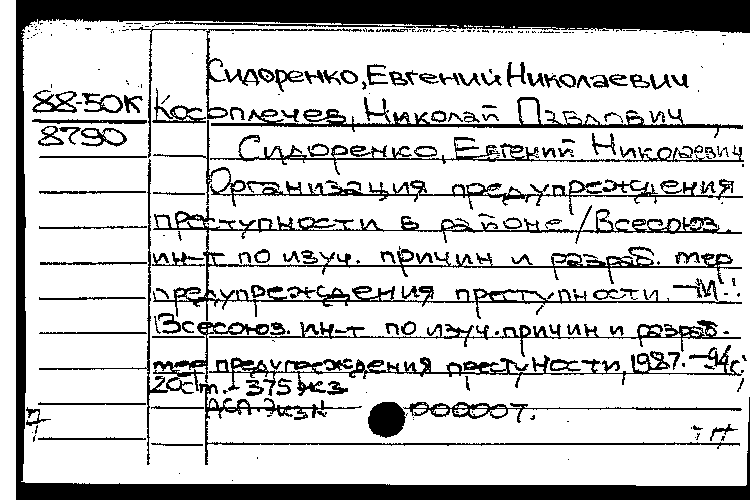 Сидоренко, Евгений Николаевич
88-50К Косоплечев, Николай Павлович,
8790 Сидоренко, Евгений Николаевич
Организация предупреждения
преступности в районе / Всесоюз.
ин-т по изуч. причин и разраб. мер
предупреждения преступности. - М.:
Всесоюз. ин-т по изуч. причин и разраб.
мер предупреждения преступности, 1987. - 94 с;
20 см. - 375 экз
ДСП. Экз N 000007.